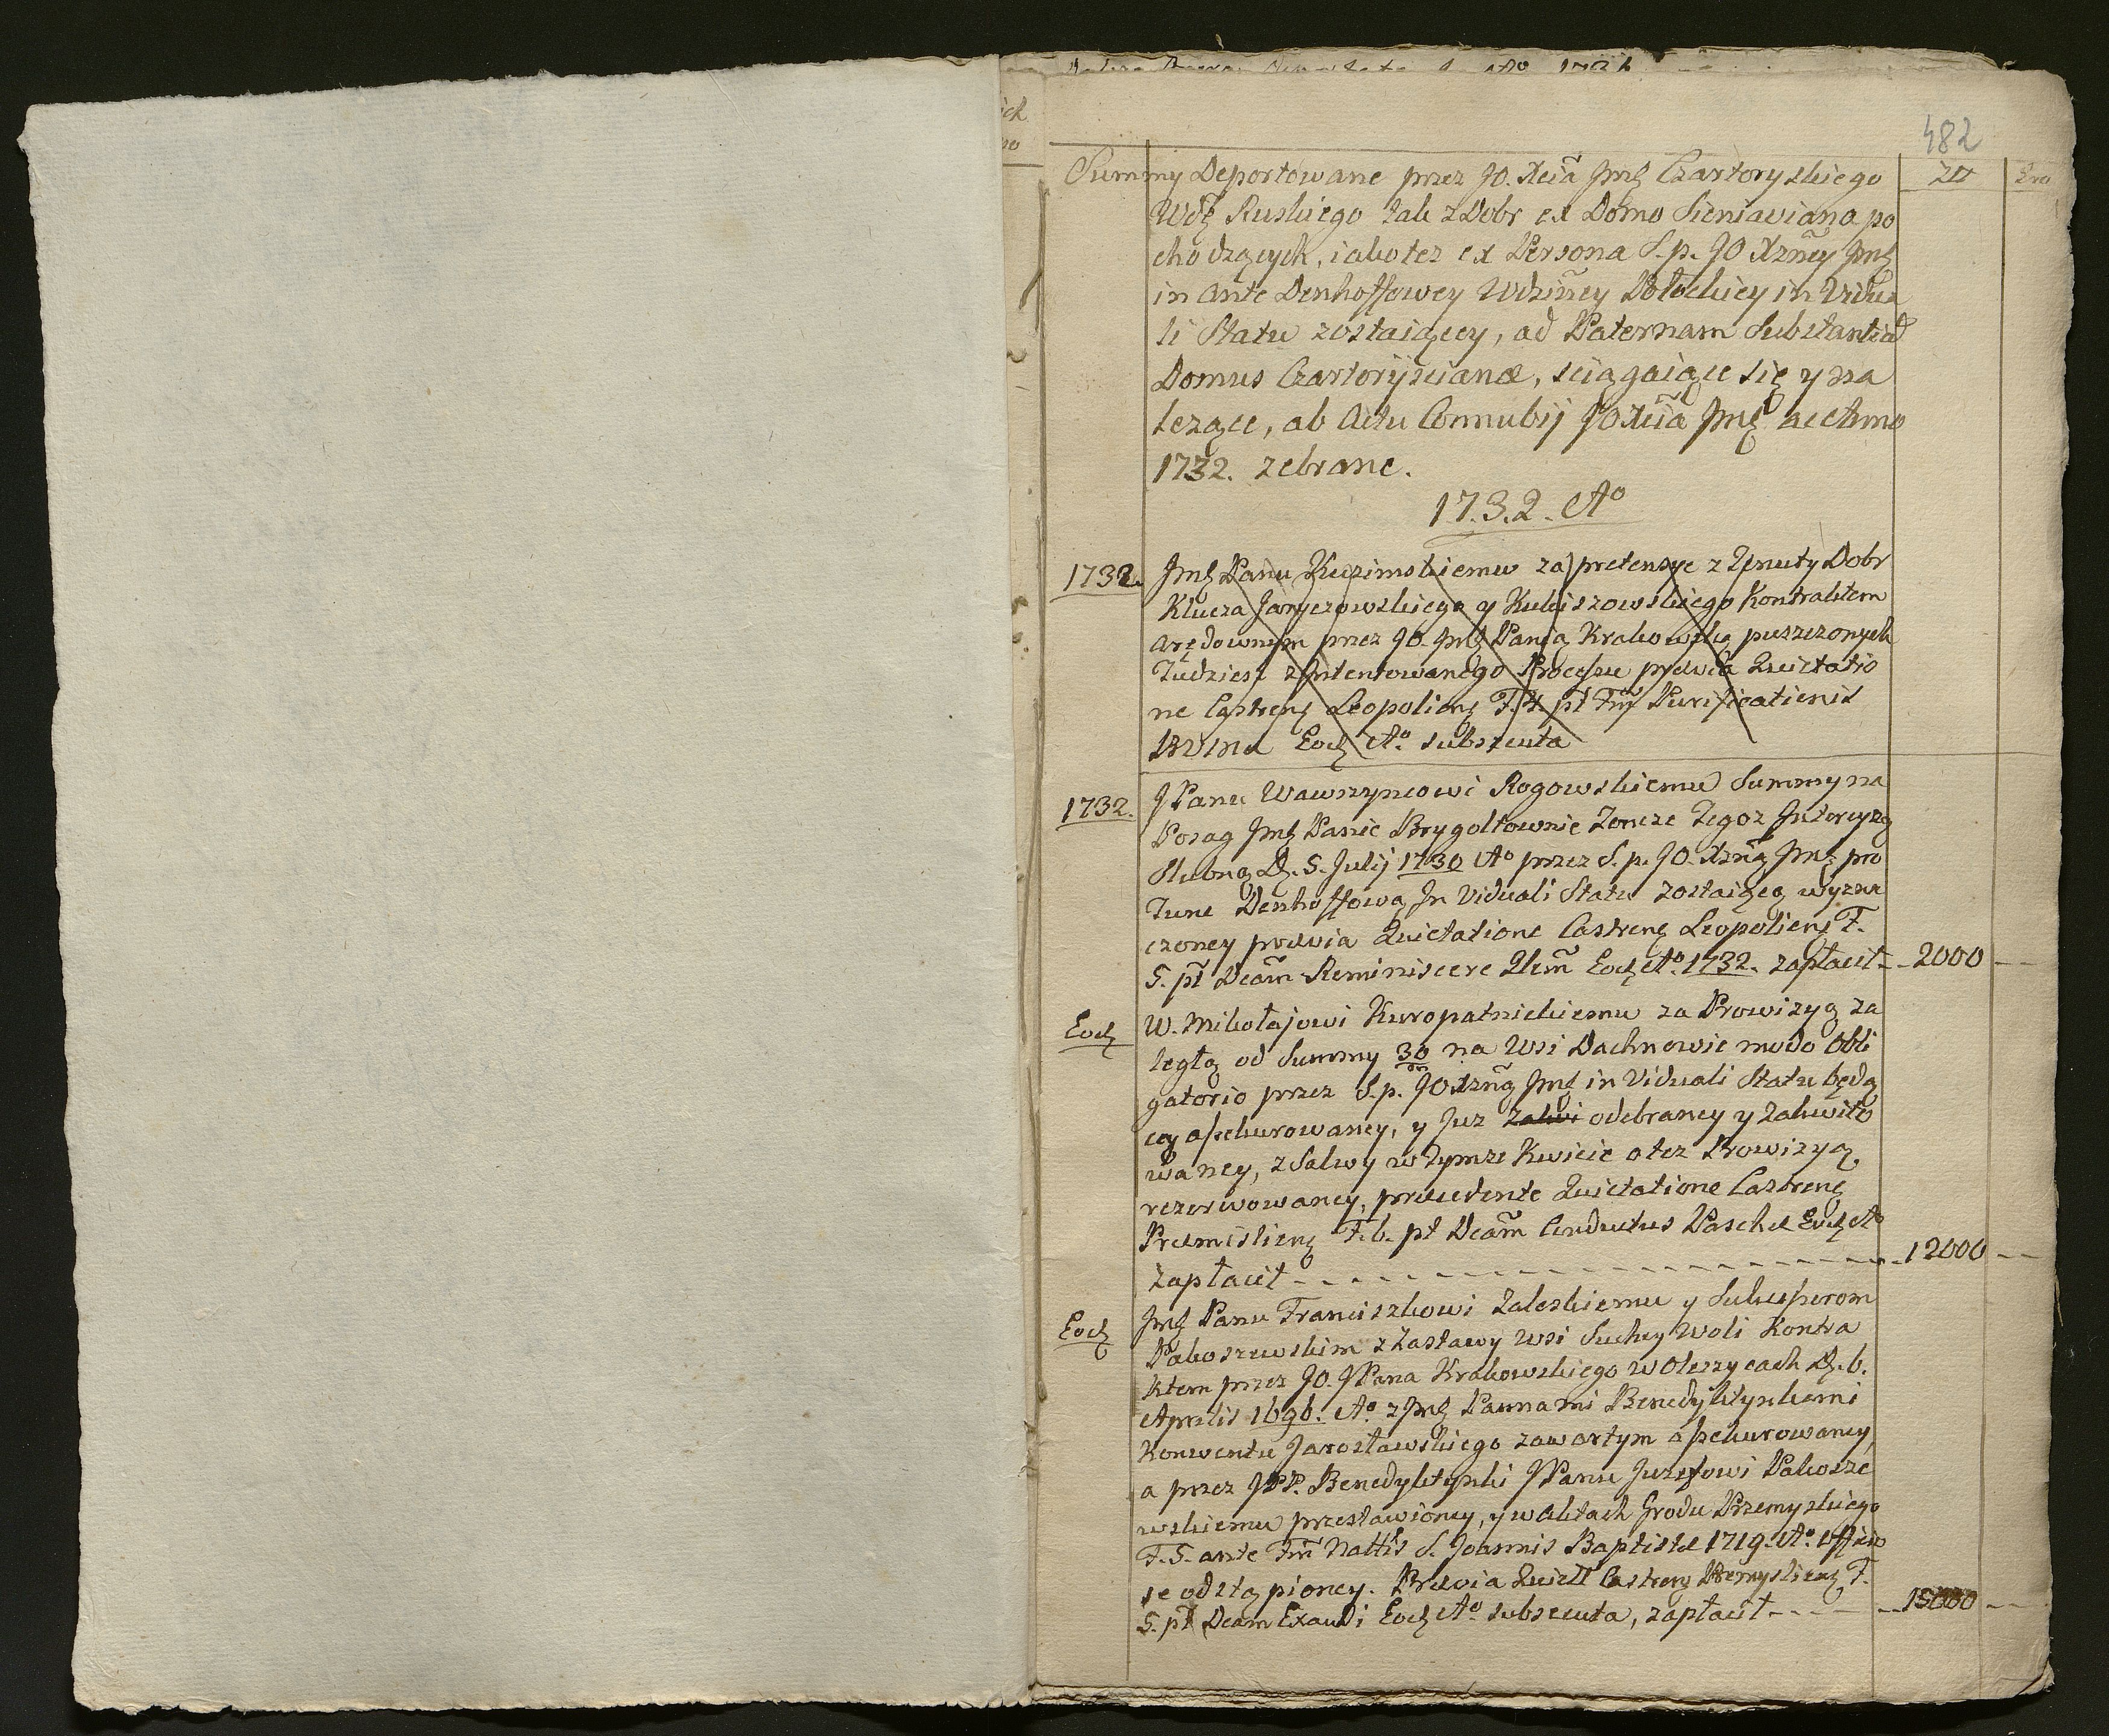 482
Summy Deportowane przez JO. Xcia Jmć Czartoryskiego
Wdę Ruskiego tak z Dobr ex Domo Sieniaviana po
chodzących, iako tez ex Persona S. p. JO Xzney Jmć
in ante Denhoffowey Wdziney Połockiey in Vidua
li Statu zostaiącey, ad Paternam Substantiā
Domus Czartoryscianæ, sciągaiące się y na
lezące, ab Actu Connubij JO Xcia Jmć
1732. zebrane.
1732. Ao
Zł
1732. Jmć Panu Kuzimskiemu za pretensye z Dobr
Klucza y Kontraktem
Arędownym przez JO. Jmć Panią Krakowską puszczonych
Tudziesz z Intentowanego Processu prævia Quietatio
ne Castrenʒ Leopolienʒ F. 4. pt Fm̃ Purificationis
Eodʒ Ao subsecuta
1732. JPanu Wawrzyncowi Rogowskiemu Summy na
Posag Jmć Pannie Brygoltownie Zoncze Tegoz Intercyzą
Slubną D. 5. Julij 1730 Ao przez S. p. JO. Xzną Jmć pro
Tunc Denhoffową In Viduali Statu zostaiącą wyzna
czoney prævia Quietatione Castrenʒ Leopolienʒ F.
5. pt Dcam̃ Reminiscere Qlem̃ Eodʒ Ao. 1732. zapłacił - - 2000 - -
Eodʒ W. Mikołajowi Kuropatnickiemu za Prowizyą za
ległą od Summy 30 na Wsi Dachnowie modo Obli
m
gatorio przez S. p. JO Xzną Jmć in Viduali Statu będą
cą assekurowaney, y Juz Zakwi odebraney y Zakwito
waney, z Salwy w Tymze Kwicie o tez Prowizyą
rezerwowaney, præcedente Quietatione Castrenʒ
Præmislienʒ F. 6. pt Dcam̃ Conductus Paschæ Eodʒ Ao
zapłacił - - - - - - - - - - - - 12000 - -
Eodʒ Jmć Panu Franciszkowi Zaleskiemu y Sukcessorom
Pakoszewskim z Zastawy wsi Suchey Woli Kontra
ktem przez JO. JPana Krakowskiego w Oleszycach D. 6.
Aprilis 1696. Ao. z Jmć Pannami Benedyktynkami
Konwentu Jarosławskiego zawartym assekurowaney,
a przez JPP. Benedyktynki JPanu Juzefowi Pakosze
wskiemu przestawioney, y w Aktach Grodu Przemyskiego
F. 5. ante Fm̃ Nattis S. Joannis Baptistæ 1719. Ao.
se odstąpioney. Prævia Quiett Castrenʒ Præmyslienʒ F.
5. pt Dcam Exaudi Eodʒ Ao subsecuta, zapłacił - - - - 15000 - -